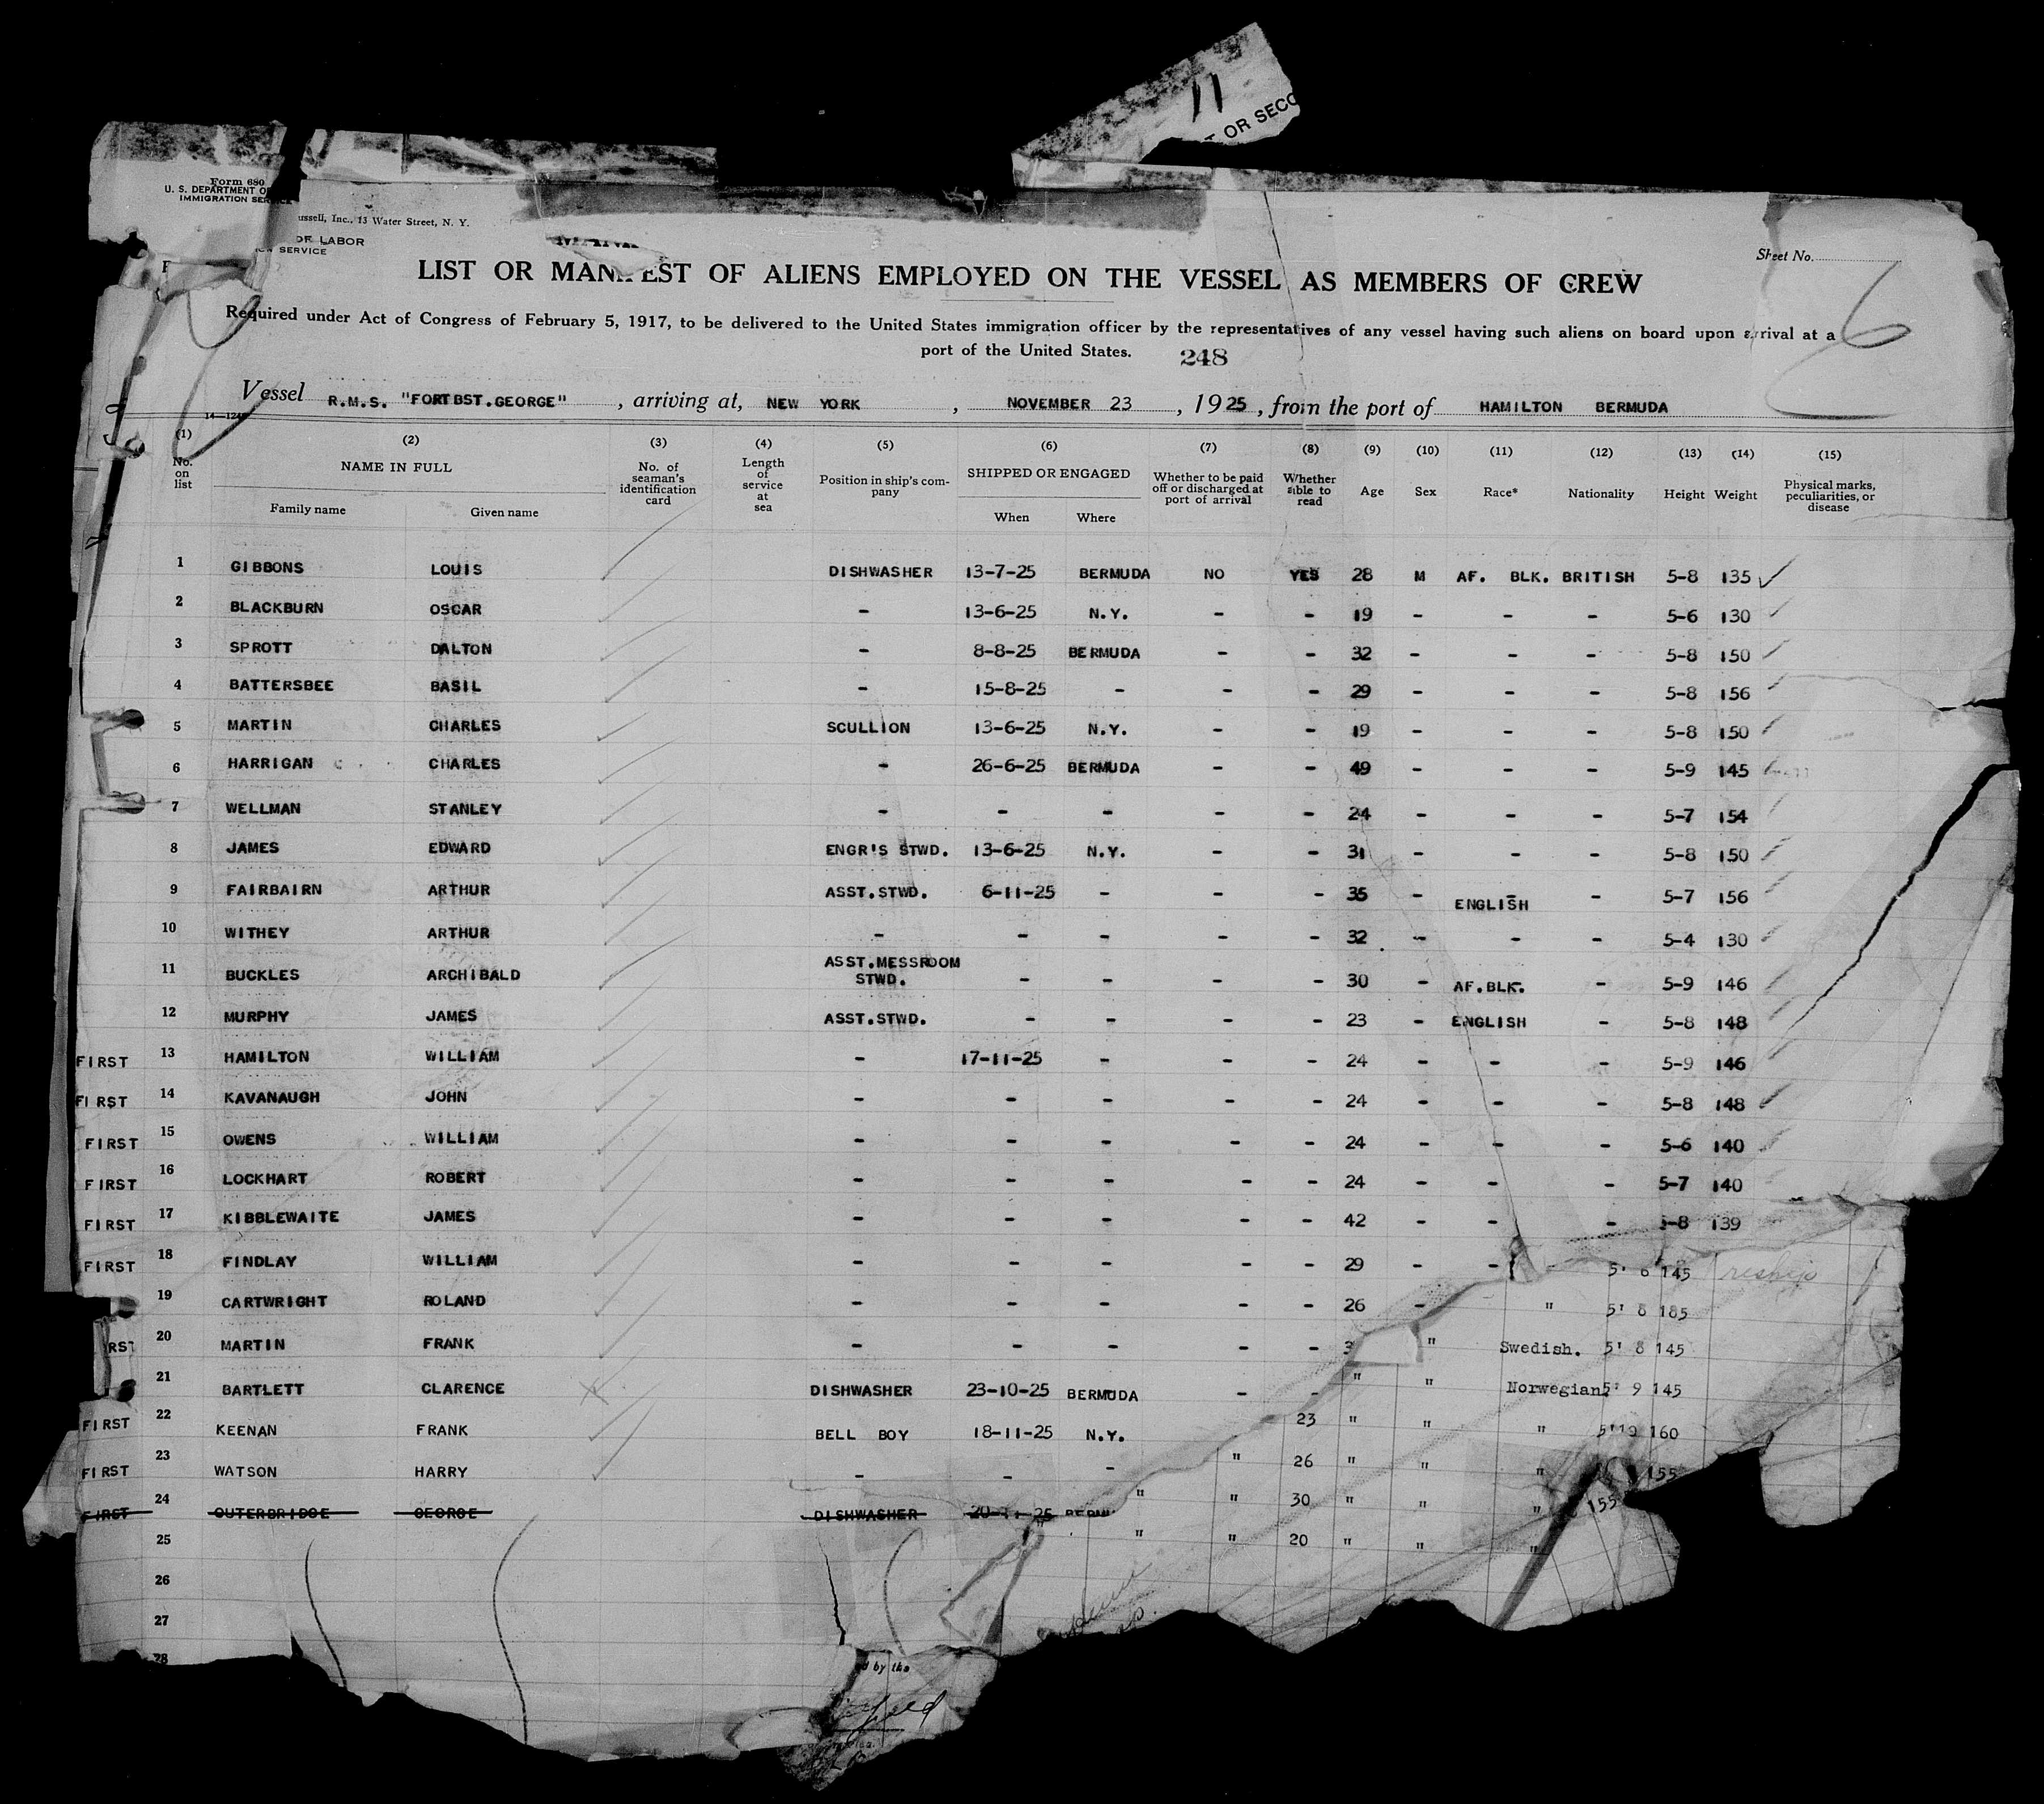 11
T OR SECO
Form 680
U. S. DEPARTMENT OF
IMMIGRATION SERVICE
ussell, Inc., 13 Water Street, N. Y.
OF LABOR
SERVICE
Sheet No.
6
LIST OR MANIFEST OF ALIENS EMPLOYED ON THE VESSEL AS MEMBERS OF CREW
Required under Act of Congress of February 5, 1917, to be delivered to the United States immigration officer by the representatives of any vessel having such aliens on board upon arrival at a
port of the United States. 248
Vessel R.M.S. "FORTBST.GEORGE", arriving at, NEW YORK, NOVEMBER 23, 1925, from the port of HAMILTON BERMUDA
(1) (2) (3) (4) (5) (6) (7) (8) (9) (10) (11) (12) (13) (14) (15)
No. on list NAME IN FULL No. of seaman's identification card Length of service at sea Position in ship's company SHIPPED OR ENGAGED Whether to be paid off or discharged at port of arrival Whether able to read Age Sex Race* Nationality Height Weight Physical marks, peculiarities, or disease
Family name Given name When Where
1 GIBBONS LOUIS DISHWASHER 13-7-25 BERMUDA NO YES 28 M AF. BLK. BRITISH 5-8 135
2 BLACKBURN OSCAR - 13-6-25 N.Y. - - 19 - - - 5-6 130
3 SPROTT DALTON - 8-8-25 BERMUDA - - 32 - - - 5-8 150
4 BATTERSBEE BASIL - 15-8-25 - - - 29 - - - 5-8 156
5 MARTIN CHARLES SCULLION 13-6-25 N.Y. - - 19 - - - 5-8 150
6 HARRIGAN CHARLES - 26-6-25 BERMUDA - - 49 - - - 5-9 145
7 WELLMAN STANLEY - - - - - 24 - - - 5-7 154
8 JAMES EDWARD ENGR'S STWD. 13-6-25 N.Y. - - 31 - - - 5-8 150
9 FAIRBAIRN ARTHUR ASST.STWD. 6-11-25 - - - 35 - ENGLISH - 5-7 156
10 WITHEY ARTHUR - - - - - 32 - - - 5-4 130
11 BUCKLES ARCHIBALD ASST.MESSROOM STWD. - - - - 30 - AF.BLK. - 5-9 146
12 MURPHY JAMES ASST.STWD. - - - - 23 - ENGLISH - 5-8 148
FIRST 13 HAMILTON WILLIAM - 17-11-25 - - - 24 - - - 5-9 146
FIRST 14 KAVANAUGH JOHN - - - - - 24 - - - 5-8 148
FIRST 15 OWENS WILLIAM - - - - - 24 - - - 5-6 140
FIRST 16 LOCKHART ROBERT - - - - - 24 - - - 5-7 140
FIRST 17 KIBBLEWAITE JAMES - - - - - 42 - - - -8 139
FIRST 18 FINDLAY WILLIAM - - - - - 29 - - 5' 6 145 reship
19 CARTWRIGHT ROLAND - - - - - 26 - " 5' 8 185
RST 20 MARTIN FRANK - - - - - 3 " Swedish. 5' 8 145
21 BARTLETT CLARENCE DISHWASHER 23-10-25 BERMUDA - - " " Norwegian 5' 9 145
FIRST 22 KEENAN FRANK BELL BOY 18-11-25 N.Y. 23 " " " 160
FIRST 23 WATSON HARRY - - - " 26 " " " 155
FIRST 24 OUTERBRIDGE GEORGE DISHWASHER 20-11-25 BERMU " " 30 " " " 155
25 " " " 20 " " "
26
27
28
d by the